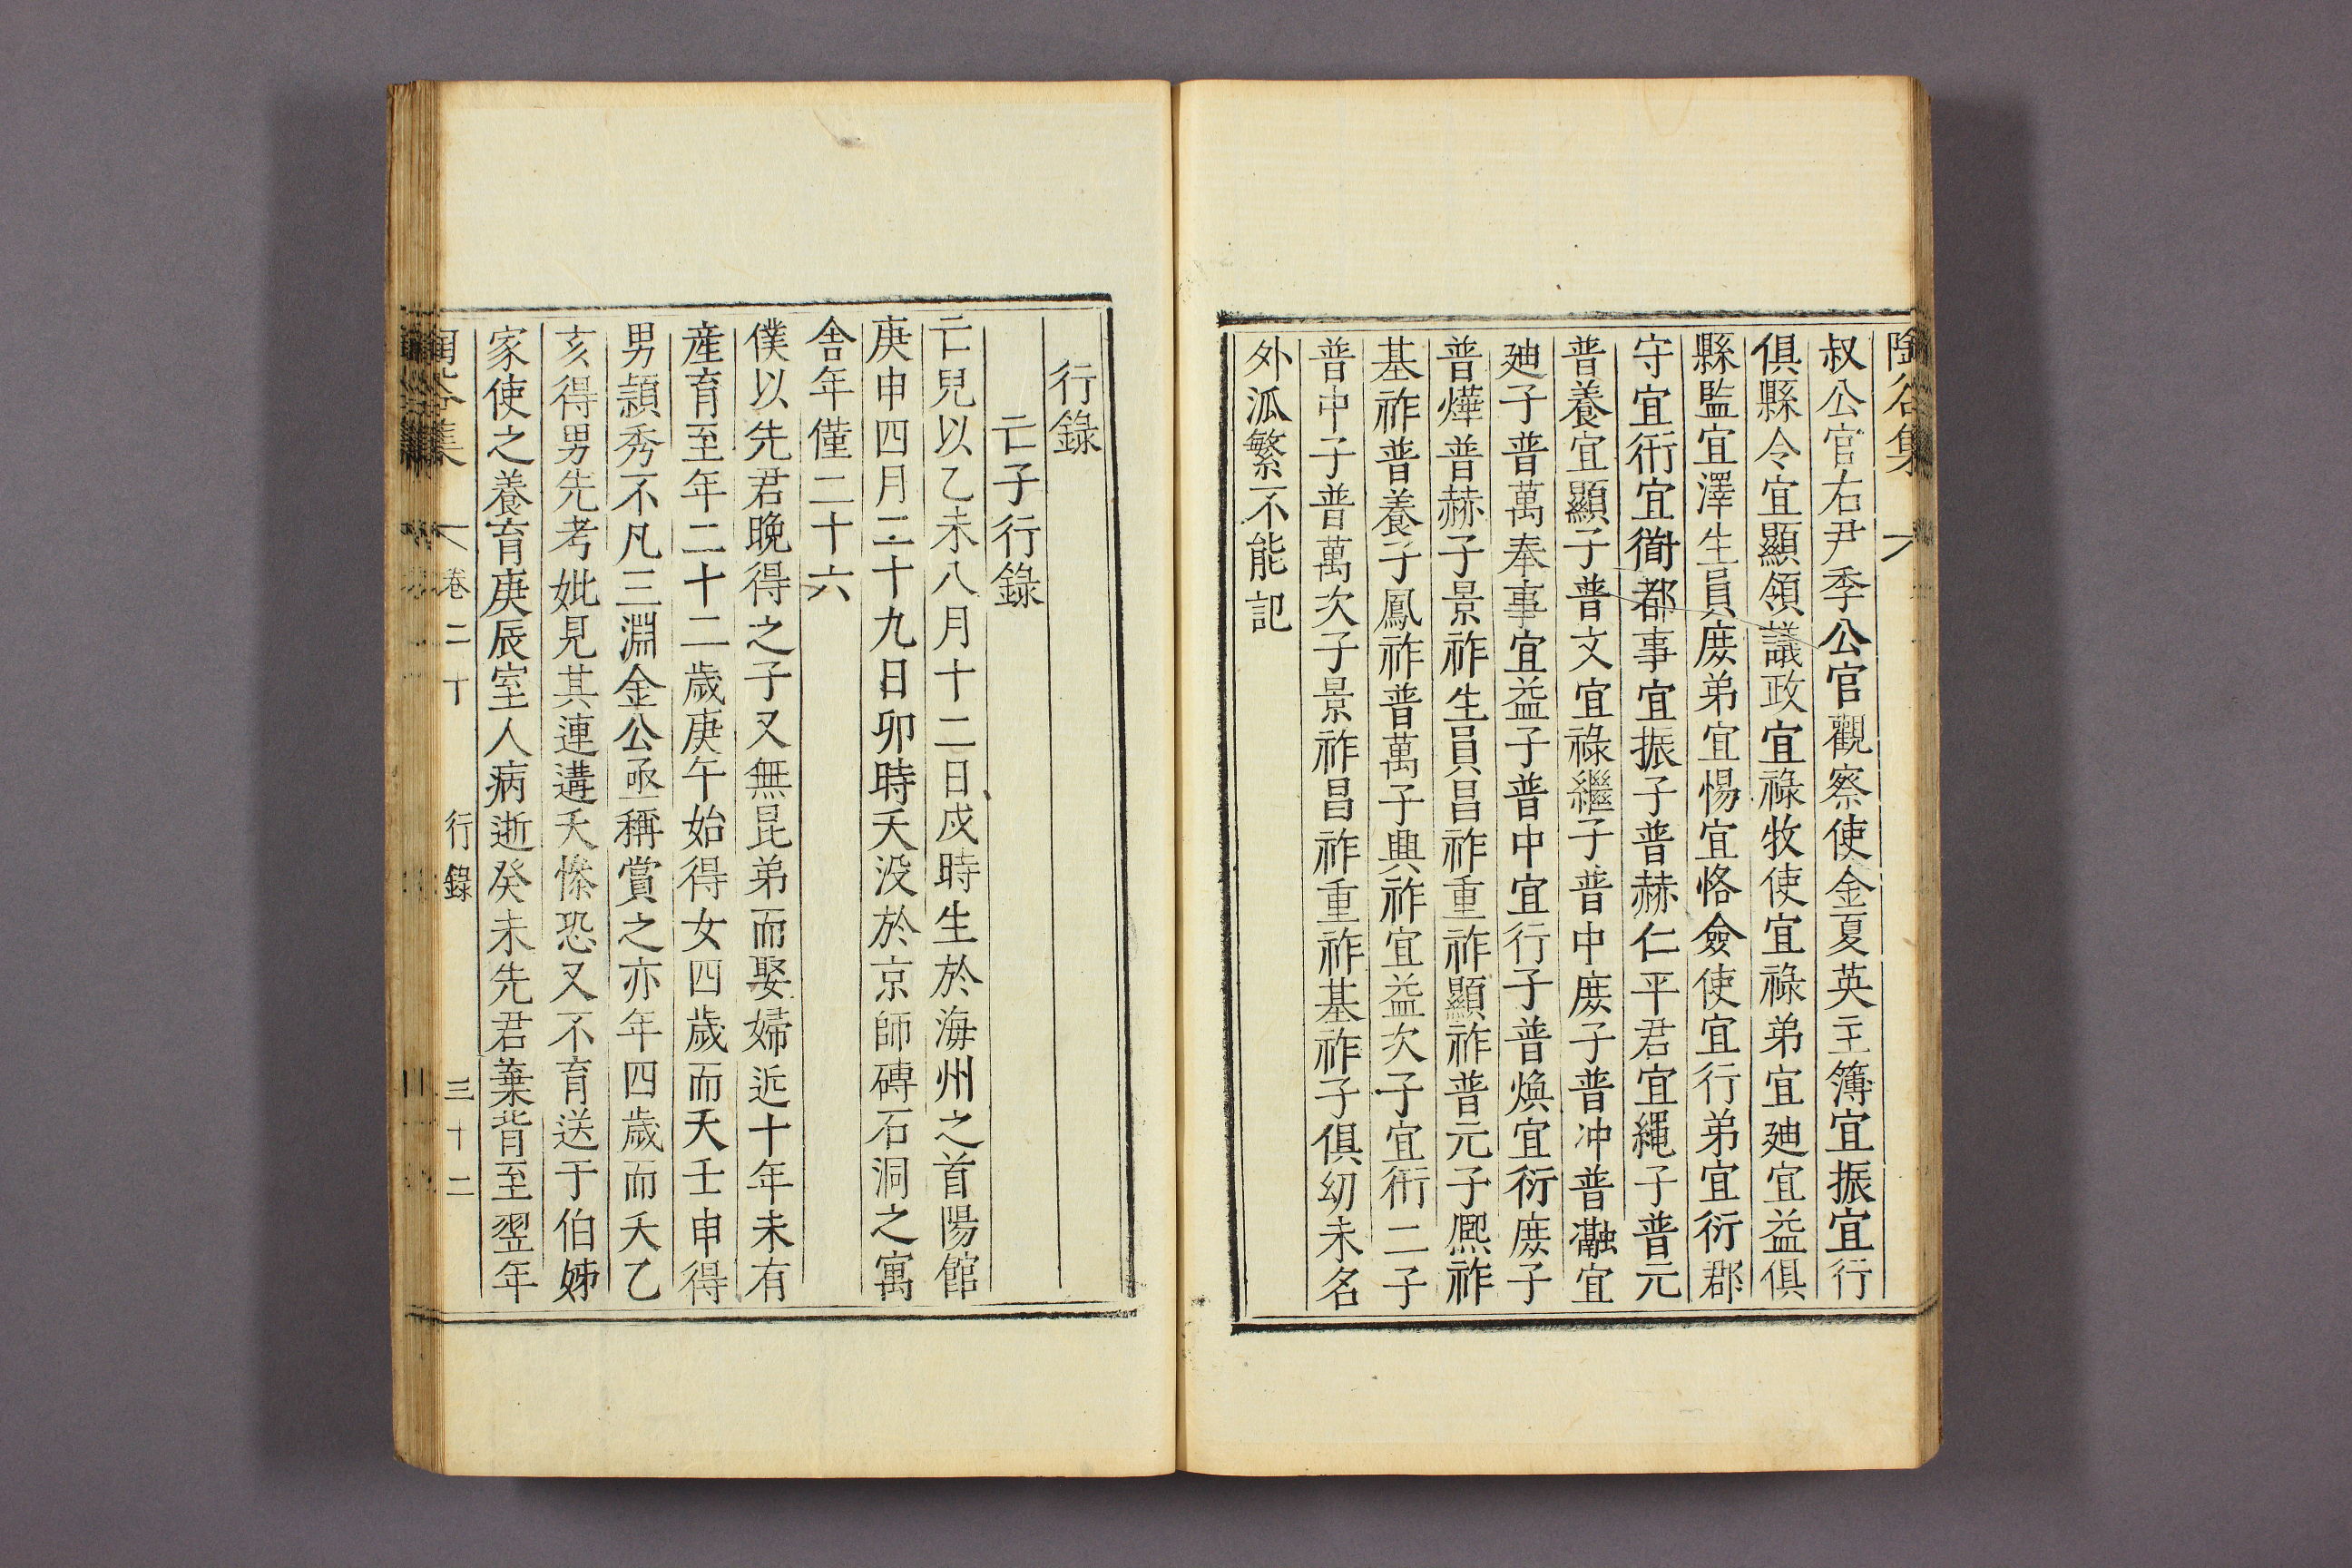 陶谷集
叔公官右尹季公官觀察使金夏英主簿宜振宜行
俱縣令宜顯領議政宜祿牧使宜祿弟宜迪宜益俱
縣監宜澤生員庶弟宜惕宜恪僉使宜行弟宜衍郡
守宜衎宜衜都事宜振子普赫仁平君宜繩子普元
普養宜顯子普文宜祿繼子普中庶子普冲普瀜宜
迪子普萬奉事宜益子普中宜行子普煥宜衍庶子
普燁普赫子景祚生員昌祚重祚顯祚普元子熈祚
基祚普養子鳳祚普萬子興祚宜益次子宜衎二子
普中子普萬次子景祚昌祚重祚基祚子俱幼未名
外派繁不能記
行錄
亡子行錄
亡兒以乙未八月十二日戌時生於海州之首陽館
庚申四月二十九日卯時夭没於京師磚石洞之寓
舍年僅二十六
僕以先君晚得之子又無昆弟而娶婦近十年未有
產育至年二十二歲庚午始得女四歲而夭壬申得
男頴秀不凡三淵金公亟稱賞之亦年四歲而夭乙
亥得男先考妣見其連遘夭慘恐又不育送于伯姊
家使之養育庚辰室人病逝癸未先君棄背至翌年
卷二十 行錄 三十二